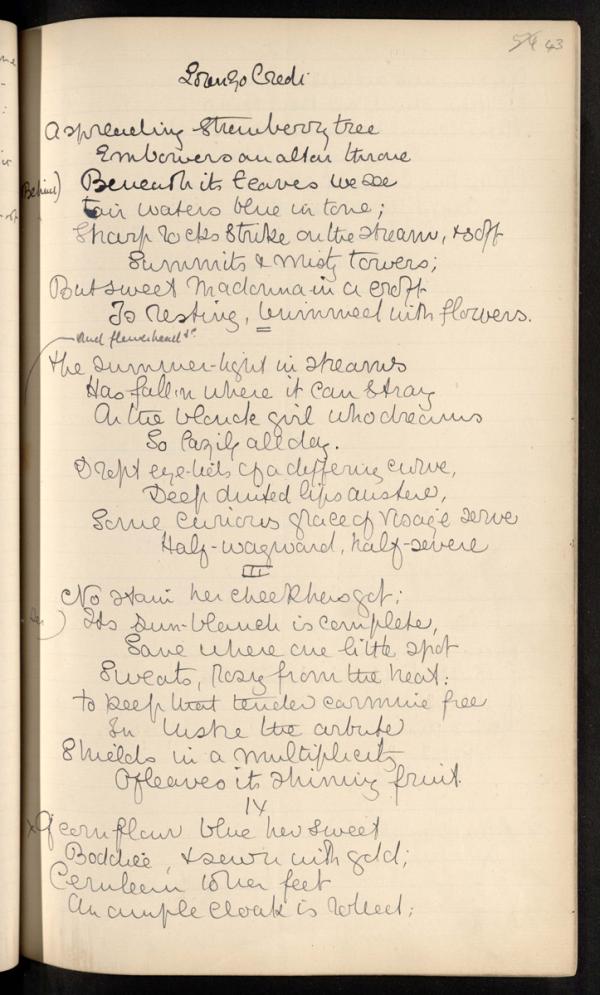 43
Lorenzo Credi
A spreading Strawberry tree
Embowers an altar throne
Behind) Beneath its leaves we see
Fair waters blue in tone;
Sharp rocks Strike on the stream, & soft
Summits & misty towers;
But sweet Madonna in a croft
Is resting, brimmed with flowers.
The summer-light in streams
Has fall'n where it can stray
On the blonde girl who dreams
So lazily all day.
Drept eye-lids of a differing curve,
Deep dinted lips austere,
Some curious grace of visage serve
Half-wayward, half-severe
III
No stain her cheek has got;
Its sun-blanch is complete,
Save where one little spot
Sweats, rosy from the heat:
To keep that tender carmine free
In lustre the arbute
Shields in a multiplicity
Of leaves its shining fruit.
IV
x Of cornflour blue her sweet
Boddice, & sewn with gold;
Cerulean to her feet
An ample cloak is rolled;